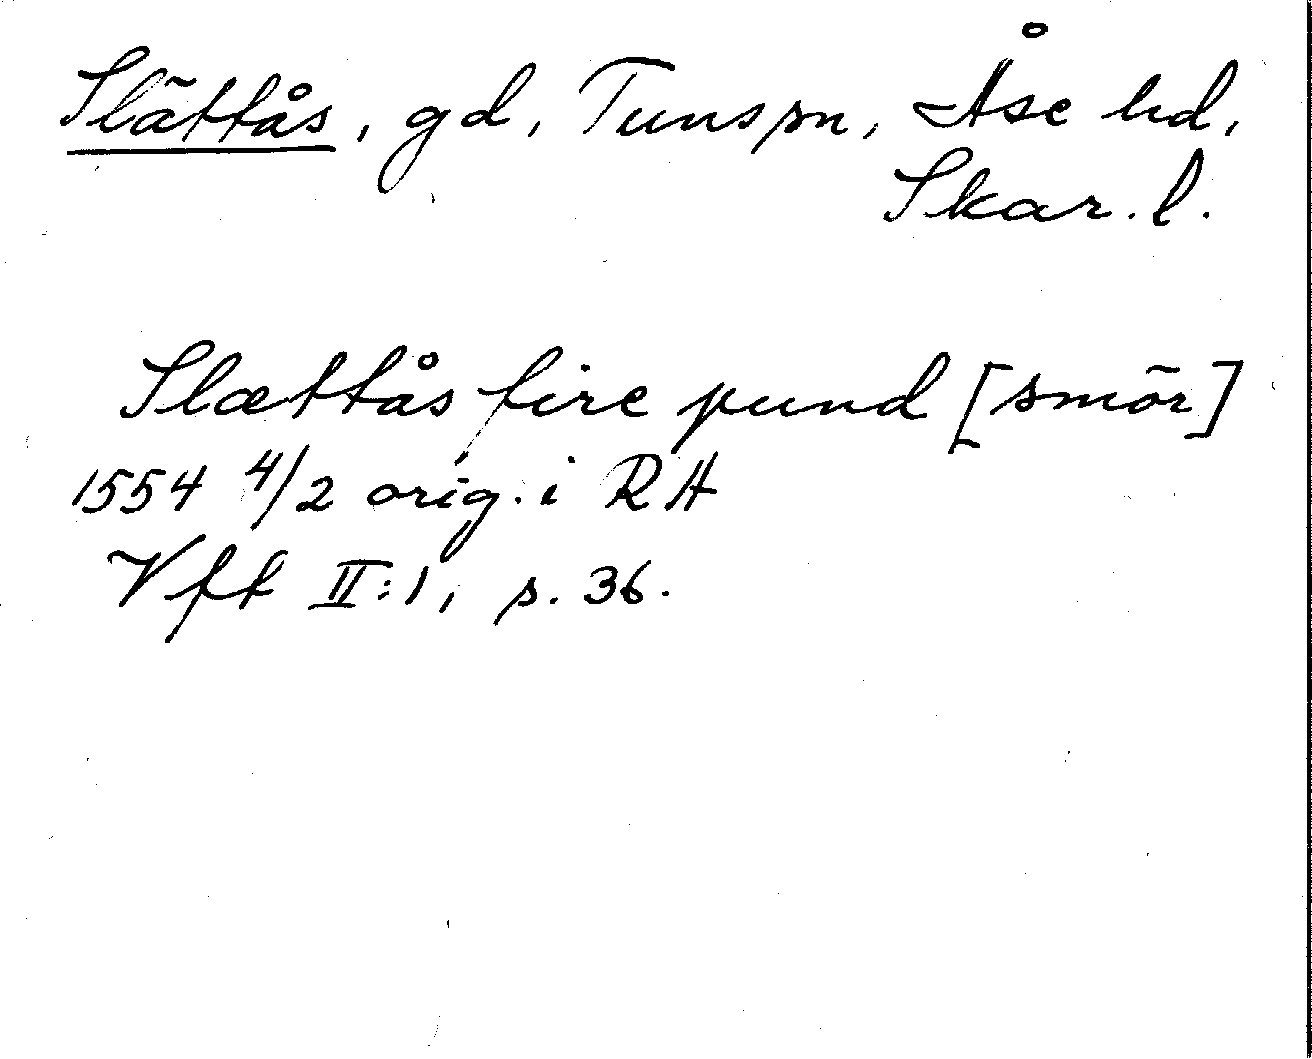 Slättås, gd, Tun sn, Åse hd,
Skar. l.
Slættås fire pund [smör]
1554 4/2 orig. i RA
Vft II:1, s. 36.